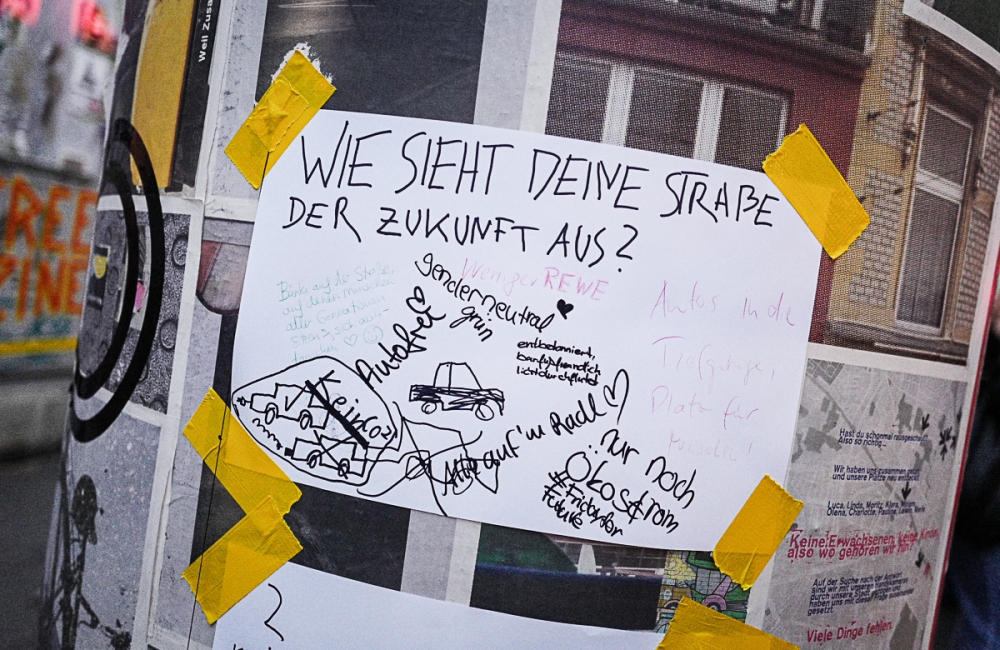 Weil Zusa
WIE SIEHT DEINE STRAßE
DER ZUKUNFT AUS?
Bänke auf der Straße,
auf denen Menschen
aller Generationen
sich aus-
Autofrei
genderneutral
grün
Weniger REWE
entbetoniert,
barfußfreundlich
lichtdurchflutet
Autos in die
Tiefgarage,
Platz für
Kein CO2!
Alle auf'm Radl
nur noch
Ökostrom
#Fridaysfor
Future
Hast du schonmal rausgeschaut?
Also so richtig...
Wir haben uns zusammen getan
und unsere Plätze neu entdeckt
Luca, Linda, Moritz, Klara,
Olena, Charlotte, Pauline,
Keine Erwachsenen, keine Kinder,
also wo gehören wir hin?
Auf der Suche nach der Antwort
sind wir mit unseren Handykameras
durch unsere Stadt gezogen und
haben uns mit dieser Frage auseinander
gesetzt.
Viele Dinge fehlen.